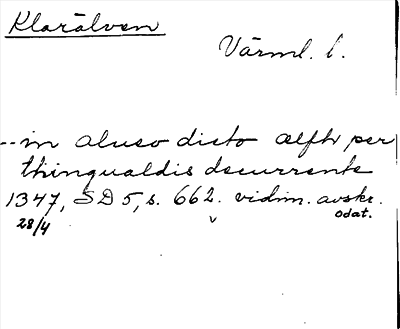 Klarälven
Värml. l.
--in alueo dicto ælfh per
thingualdis decurrente
1347, SD 5, s. 662. vidim. avskr.
28/4 odat.